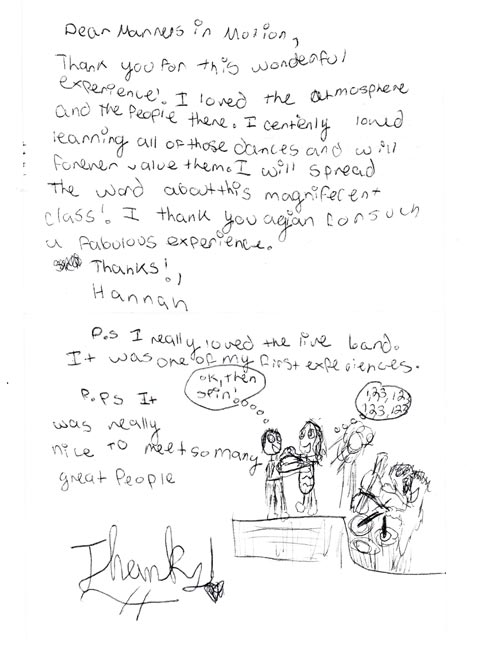 Dear Manners in Motion,
Thank you for this wonderful
experience! I loved the atmosphere
and the People there. I centenly loved
learning all of those dances and will
forever value them. I will spread
The word about this magnifecent
class! I thank you agian for such
a fabulous experience.
Thanks!,
Hannah
P.s I really loved the live band.
It was one of my first experiences.
ok, then
spin!
1,23,12
123,123
P.PS It
was really
nice to meet so many
great People
Thanks!